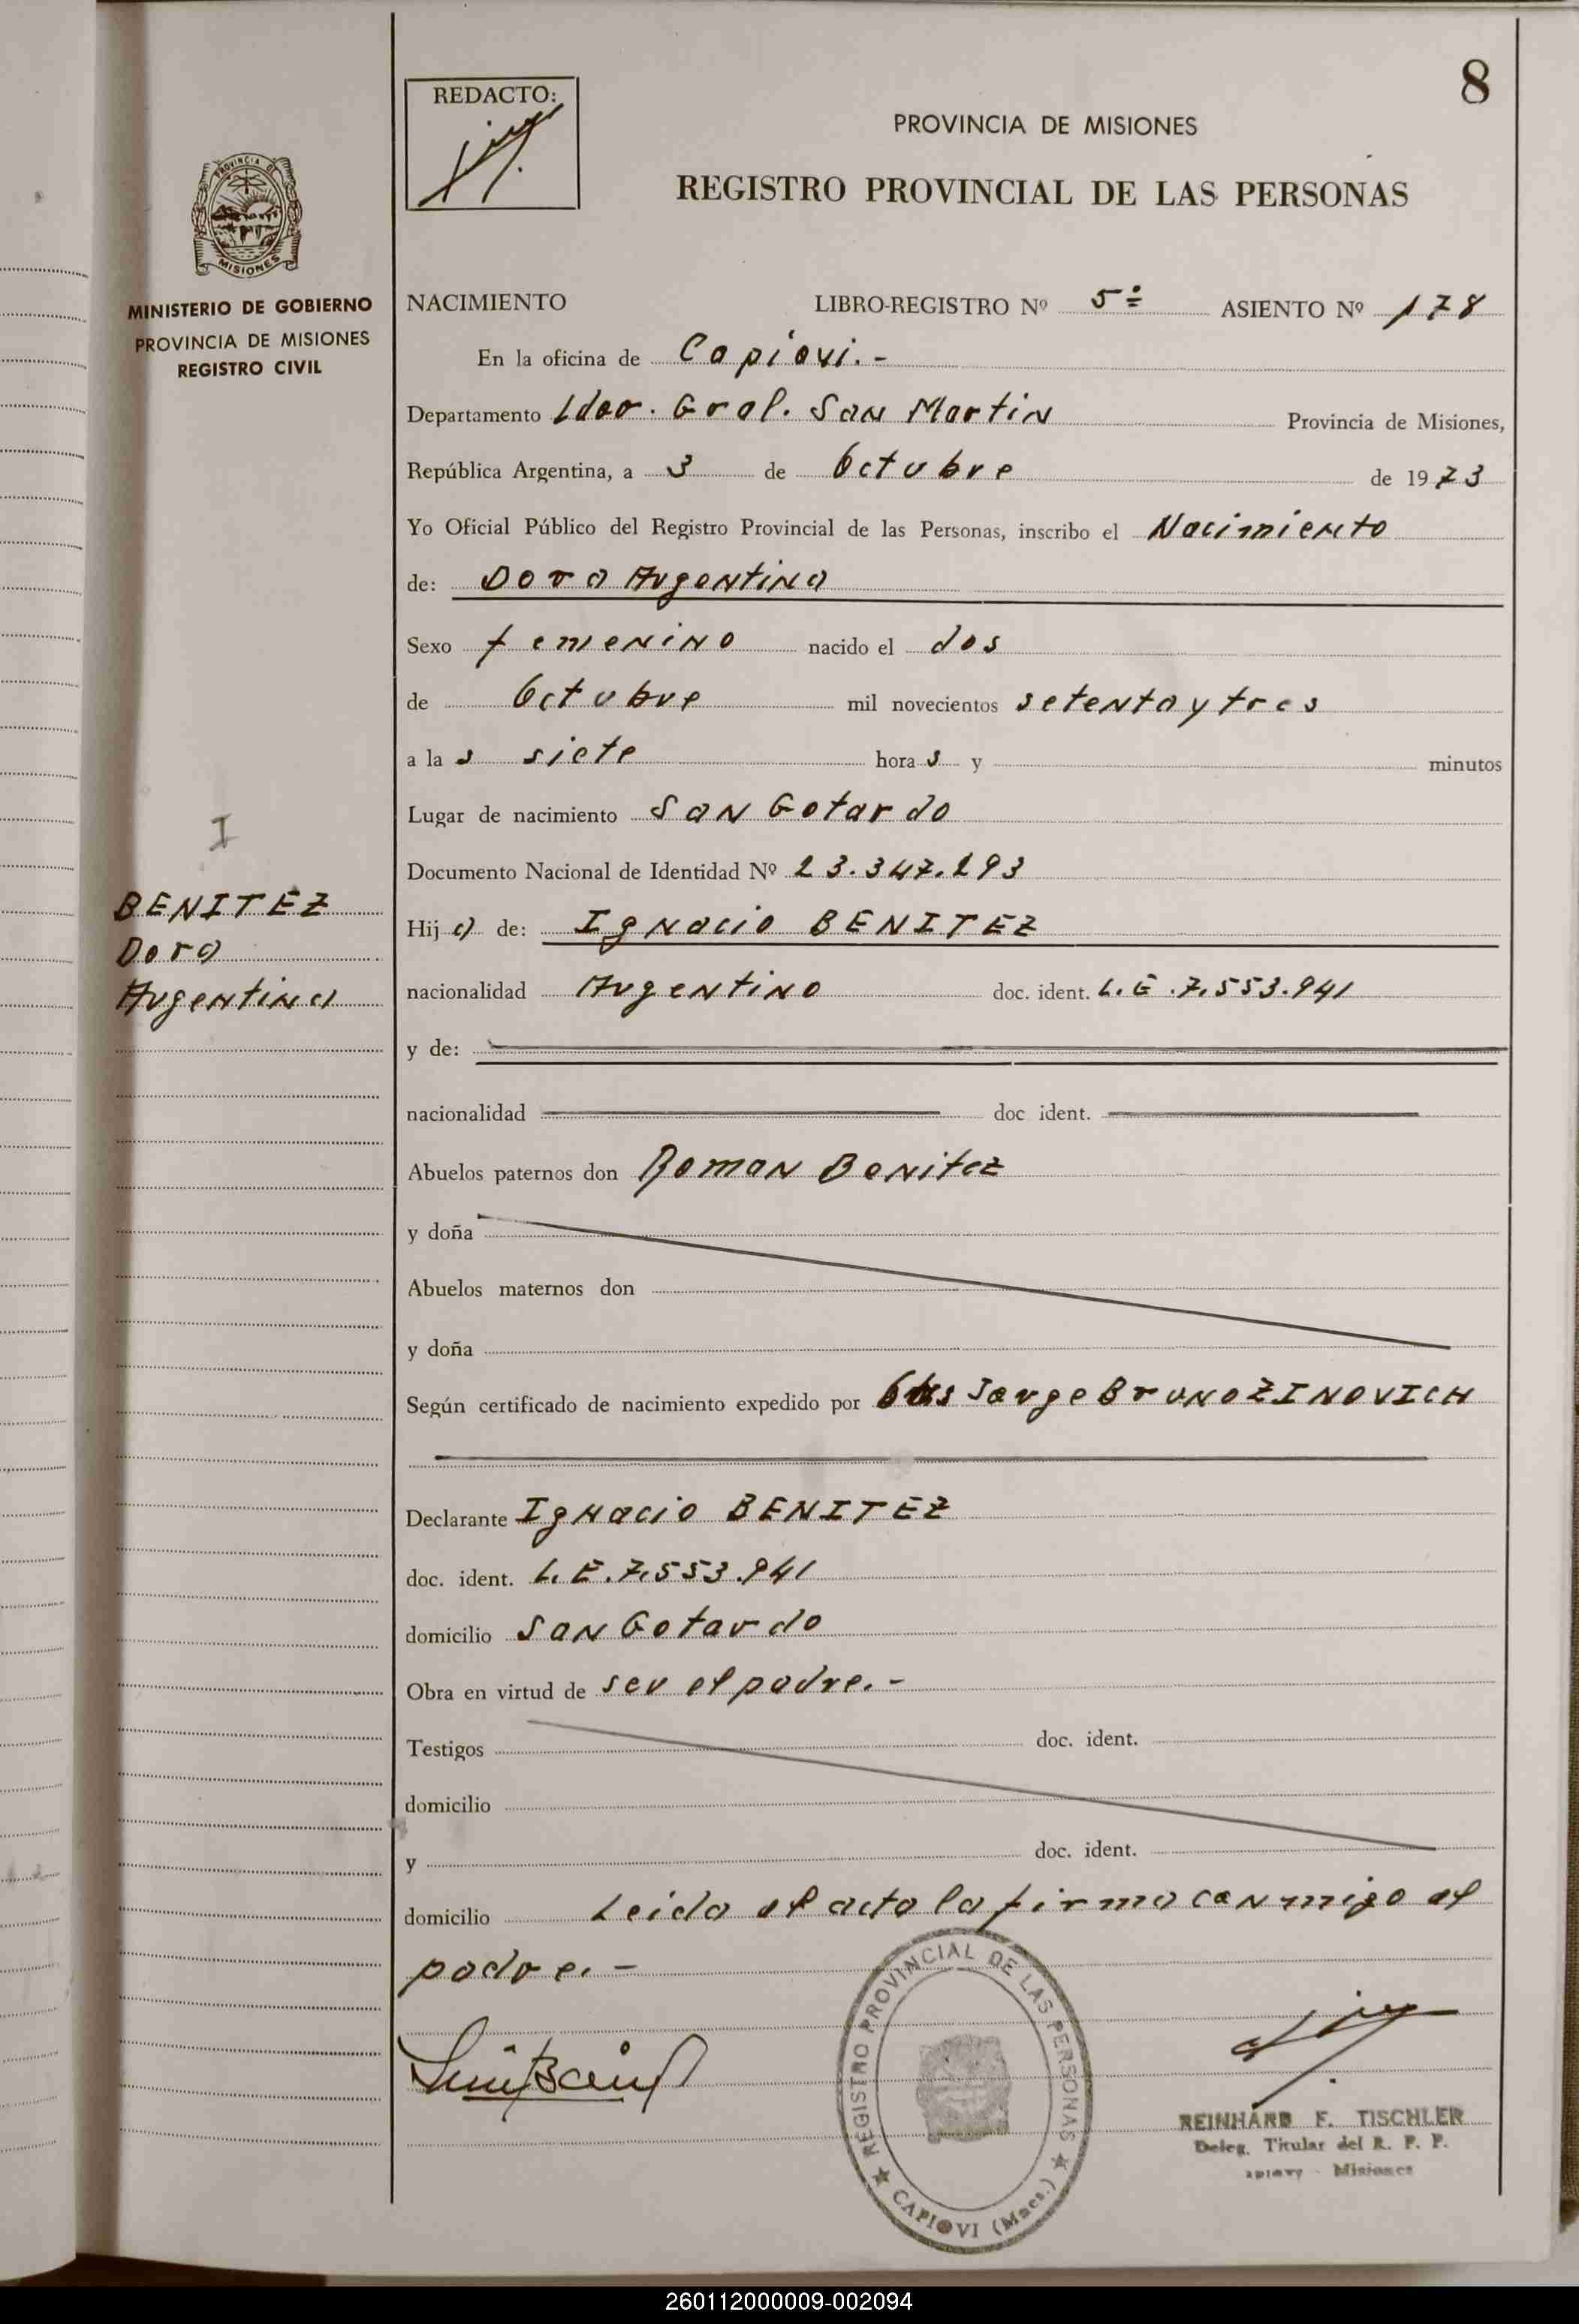 8
REDACTO:
PROVINCIA DE MISIONES
REGISTRO PROVINCIAL DE LAS PERSONAS
PROVINCIA DE
MISIONES
MINISTERIO DE GOBIERNO
PROVINCIA DE MISIONES
REGISTRO CIVIL
NACIMIENTO LIBRO-REGISTRO Nº 5º ASIENTO Nº 178
En la oficina de Capiovi.-
Departamento Ldor. Gral. San Martin Provincia de Misiones,
República Argentina, a 3 de Octubre de 1973
Yo Oficial Público del Registro Provincial de las Personas, inscribo el Nacimiento
de: Dora Argentina
Sexo femenino nacido el dos
de Octubre mil novecientos setenta y tres
a las siete horas y minutos
Lugar de nacimiento San Gotardo
Documento Nacional de Identidad Nº 23.347.293
I
BENITEZ
Dora
Argentina
Hija de: Ignacio BENITEZ
nacionalidad Argentino doc. ident. L.E.7.553.941
y de:
nacionalidad doc ident.
Abuelos paternos don Roman Benitez
y doña
Abuelos maternos don
y doña
Según certificado de nacimiento expedido por Jorge Bruno ZINOVICH
Declarante Ignacio BENITEZ
doc. ident. L.E.7.553.941
domicilio San Gotardo
Obra en virtud de ser el padre.-
Testigos doc. ident.
domicilio
y doc. ident.
domicilio Leida el acta la firma conmigo el
padre.-
REGISTRO PROVINCIAL DE LAS PERSONAS
CAPIOVI (Mnes.)
REINHARD F. TISCHLER
Deleg. Titular del R. P. P.
Misiones
260112000009-002094